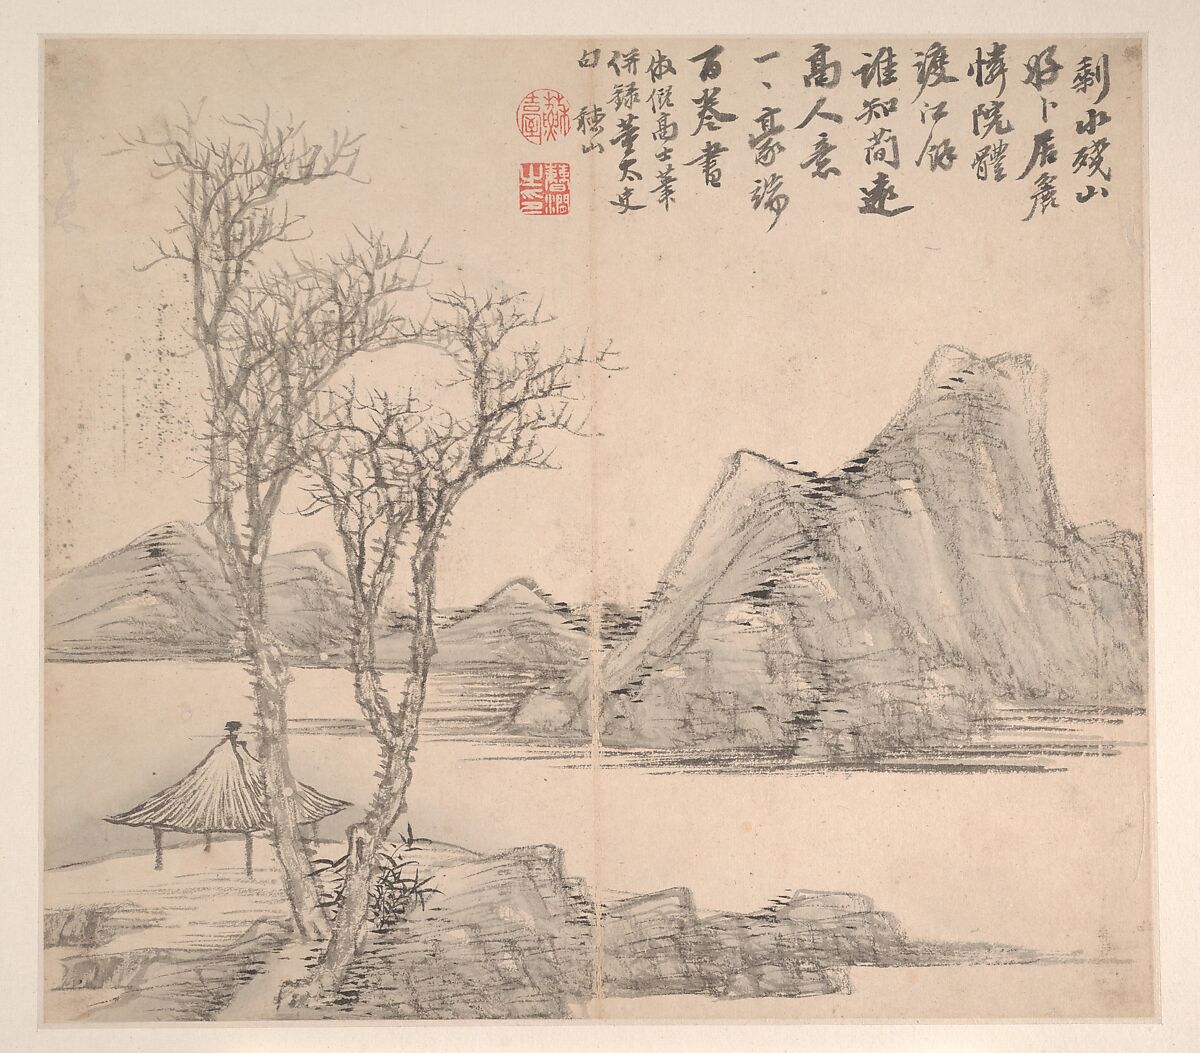 剩水殘山
好卜居差
憐院體
渡江餘
誰知簡遠
高人意
一、豪端
百卷書
倣倪高士筆
併錄董太史
句